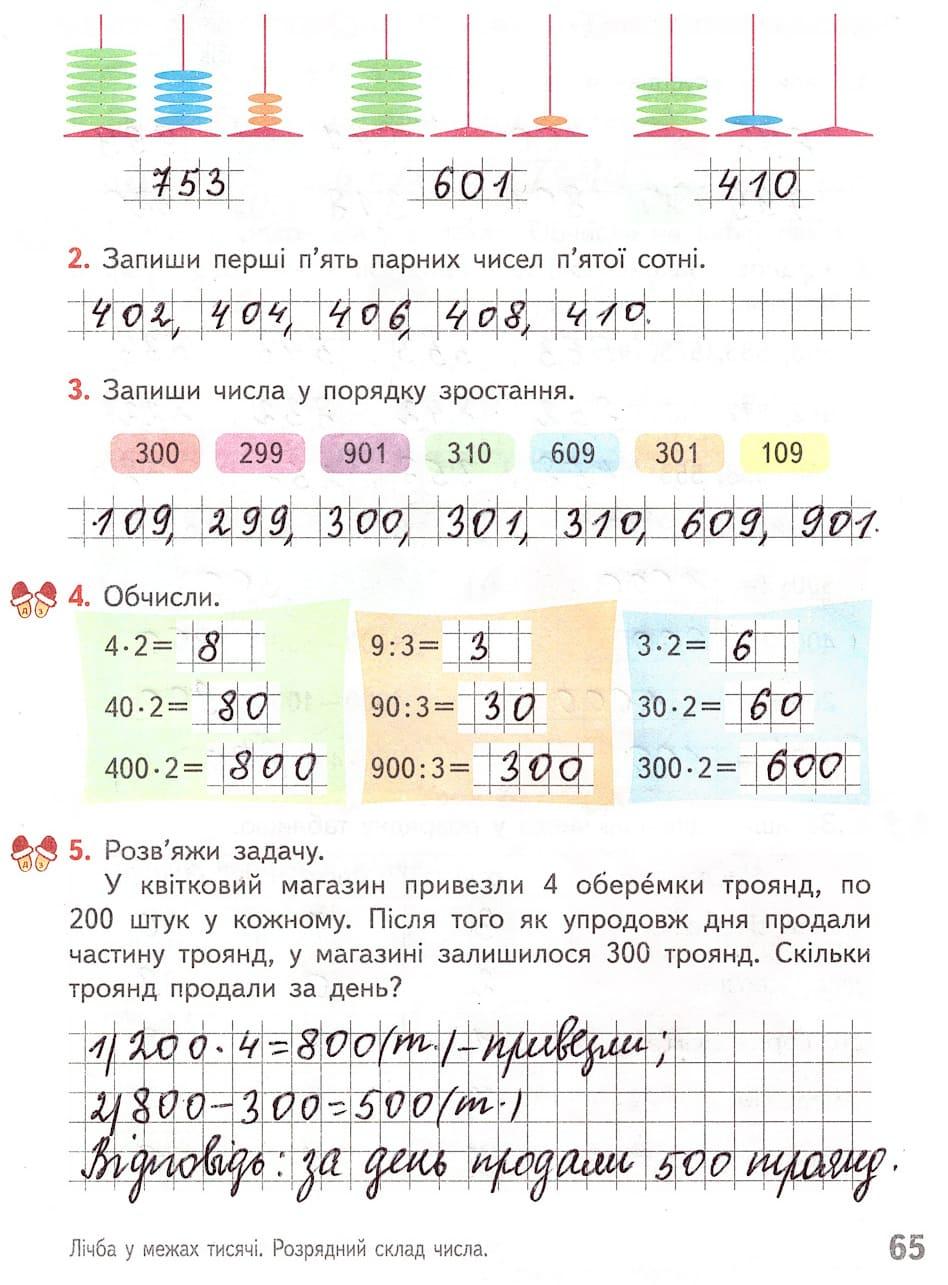 753 601 410
2. Запиши перші п'ять парних чисел п'ятої сотні.
402, 404, 406, 408, 410.
3. Запиши числа у порядку зростання.
300 299 901 310 609 301 109
109, 299, 300, 301, 310, 609, 901.
4. Обчисли.
4·2= 8 9:3= 3 3·2= 6
40·2= 80 90:3= 30 30·2= 60
400·2= 800 900:3= 300 300·2= 600
5. Розв'яжи задачу.
У квітковий магазин привезли 4 обере́мки троянд, по
200 штук у кожному. Після того як упродовж дня продали
частину троянд, у магазині залишилося 300 троянд. Скільки
троянд продали за день?
1) 200·4=800(т.)–привезли;
2) 800–300=500(т.)
Відповідь: за день продали 500 троянд.
Лічба у межах тисячі. Розрядний склад числа.
65